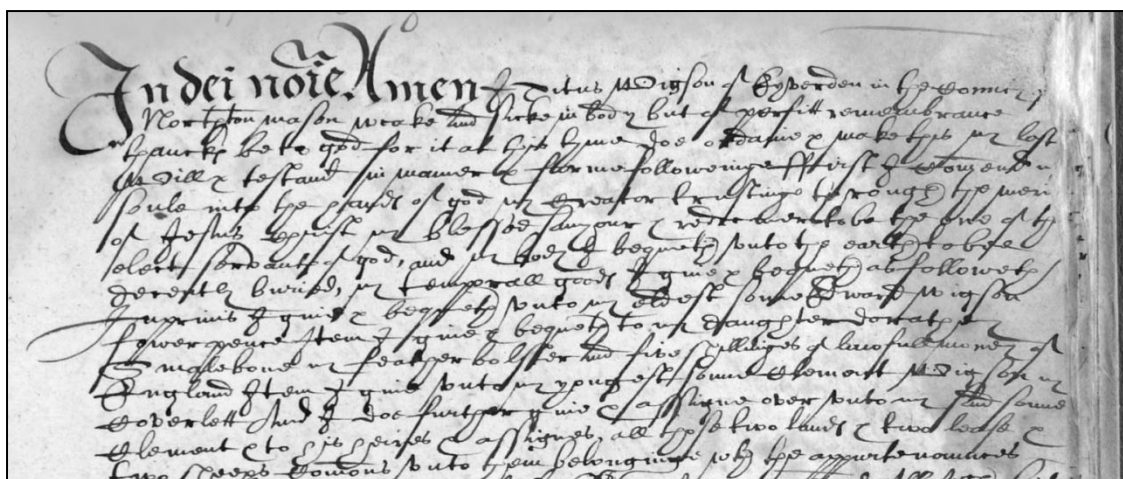 In dei no͞ie Amen I Titus Wigson of Eyverden in the County of
Northton mason weake and sicke in body but of perfitt remembrance
thanckes be to god for it at this tyme doe ordaine & make this my last
Will & testament in manner & forme followeinge ffirst I Comend
soule into the hands of god my Creator trustinge through the meri
of Jesus Christ my blessed savyour & redeemer to be the one of th
elect servants of god, and my body I bequeth unto the earth to bee
decently buried, my temporall goods I give & bequeth as followeth
Inprimis I give & bequeth unto my eldest sonne Edward Wigson
fower pence Item I give & bequeth to my daughter Dorathe
Smalebone my feather bolster and five shillinges of lawfull money of
England Item I give unto my yongest sonne Clement Wigson my
Coverlett And I doe further give & assigne over unto my said sonne
Clement & to his heires & assignes, all those two lands & two lease &
two sheeps Comons unto them belonginge with the appurtenaunces